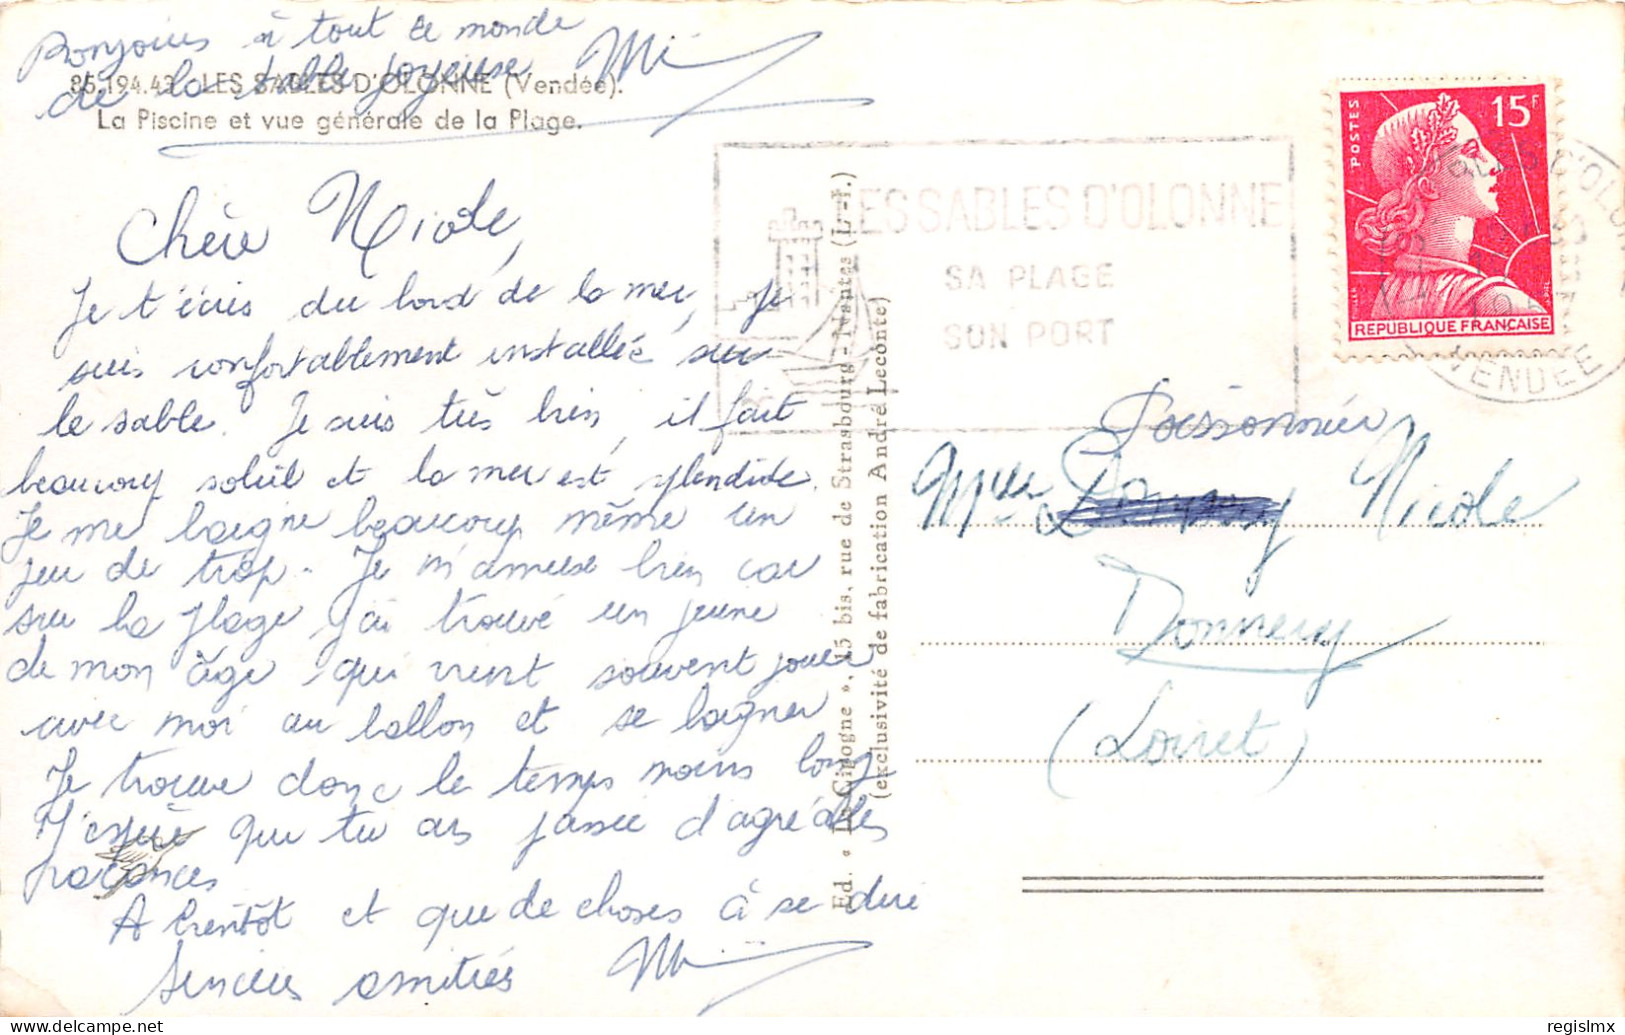 Bonjours à tout ce monde
de la table joyeuse
85.194.43 LES SABLES D'OLONNE (Vendée).
La Piscine et vue générale de la Plage.
Chère Nicole,
Je t'écris du bord de la mer, je
suis confortablement installée sur
le sable. Je suis très bien, il fait
beaucoup soleil et la mer est splendide.
Je me baigne beaucoup même un
peu de trop. Je m'amuse bien car
sur la plage j'ai trouvé un jeune
de mon âge qui vient souvent jouer
avec moi au ballon et se baigner
Je trouve donc le temps moins long
J'espère que tu as passée d'agréables
vacances
A bientôt et que de choses à se dire
Sincères amitiés
Ed. « La Cigogne », 15 bis, rue de Strasbourg - Nantes (L.-I.)
(exclusivité de fabrication André Leconte)
LES SABLES D'OLONNE
SA PLAGE
SON PORT
POSTES
15F
REPUBLIQUE FRANÇAISE
VENDEE
Poissonnier
Mlle Nicole
Donnery
(Loiret)
delcampe.net
regislmx